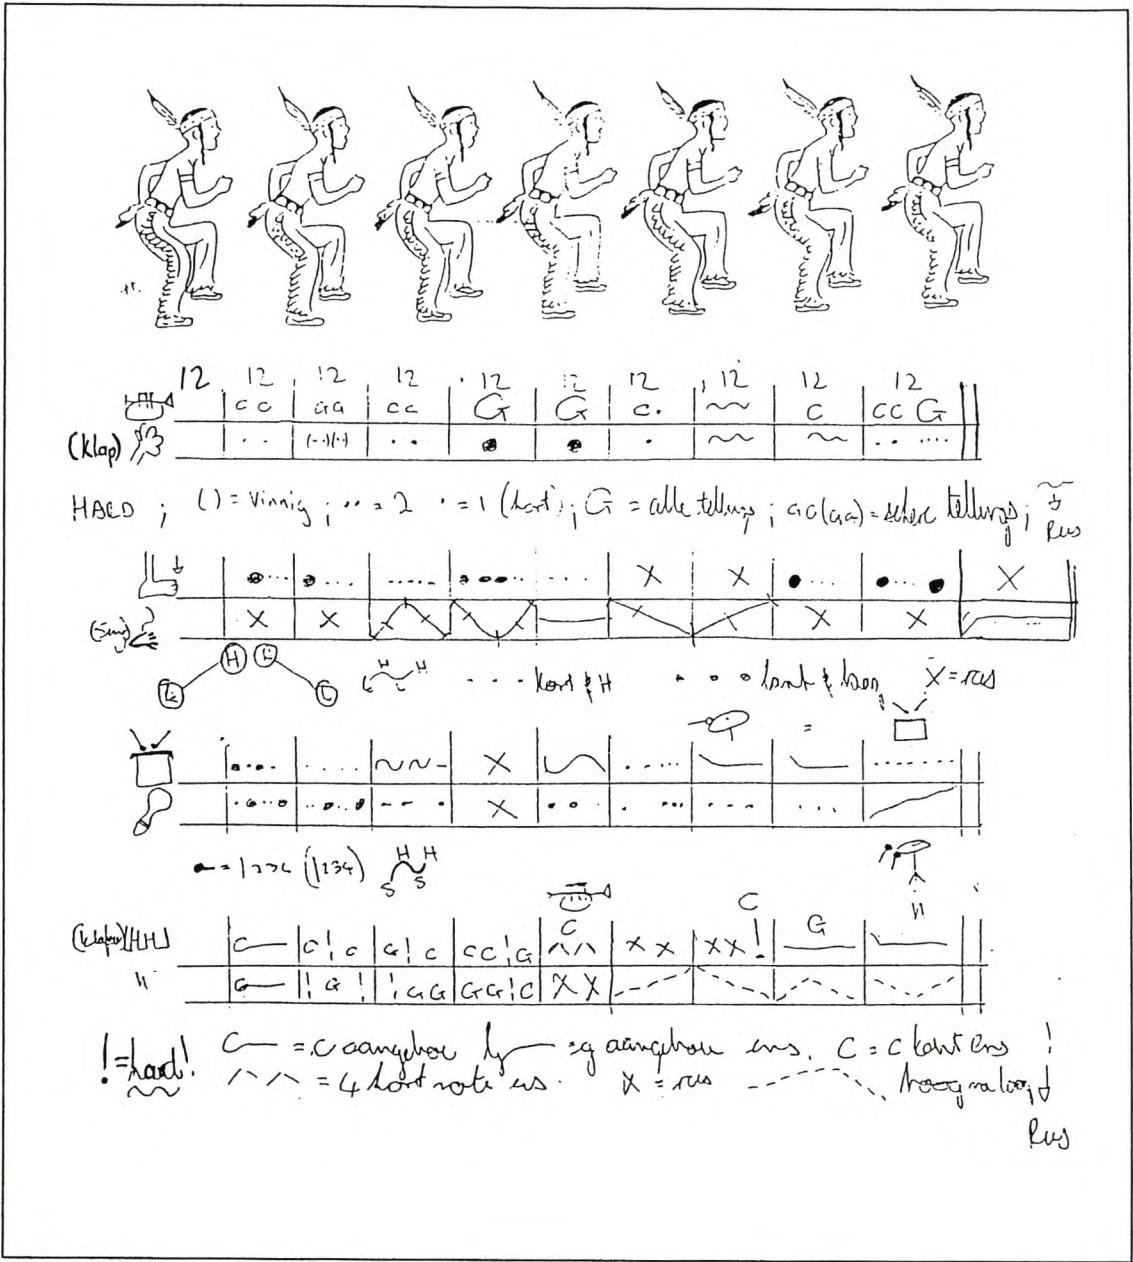 12 12 12 12 12 12 12 12 12 12
CC GG CC G G C. C CC G
(klap)
HARD ; () = Vinnig ; .. = 2 . = 1 (kort) ; G = alle tellings ; GG(GG) = sekere tellings ;
Rus
X X X
(Sing) X X X X
H
H H
L L
. . . . kort & H
X = rus
=
X
X
= 1234 (1234) H H
S S
C G
"
(klapper)(HH) C C ! C G ! C CC ! G C X X XX !
" G ! G ! ! GG GG ! C X X
! = hard! C = C aangehou = g aangehou ens. C = C kort ens !
= 4 kort note ens. X = rus hoog na laag
Rus